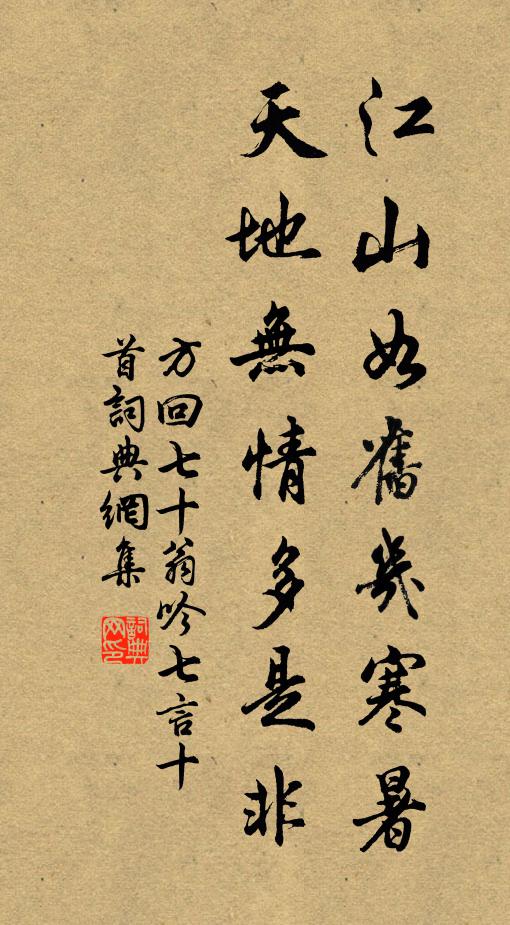 江山如舊幾寒暑
天地無情多是非
方回七十翁吟七言十
首詞典網集
詞典
网印